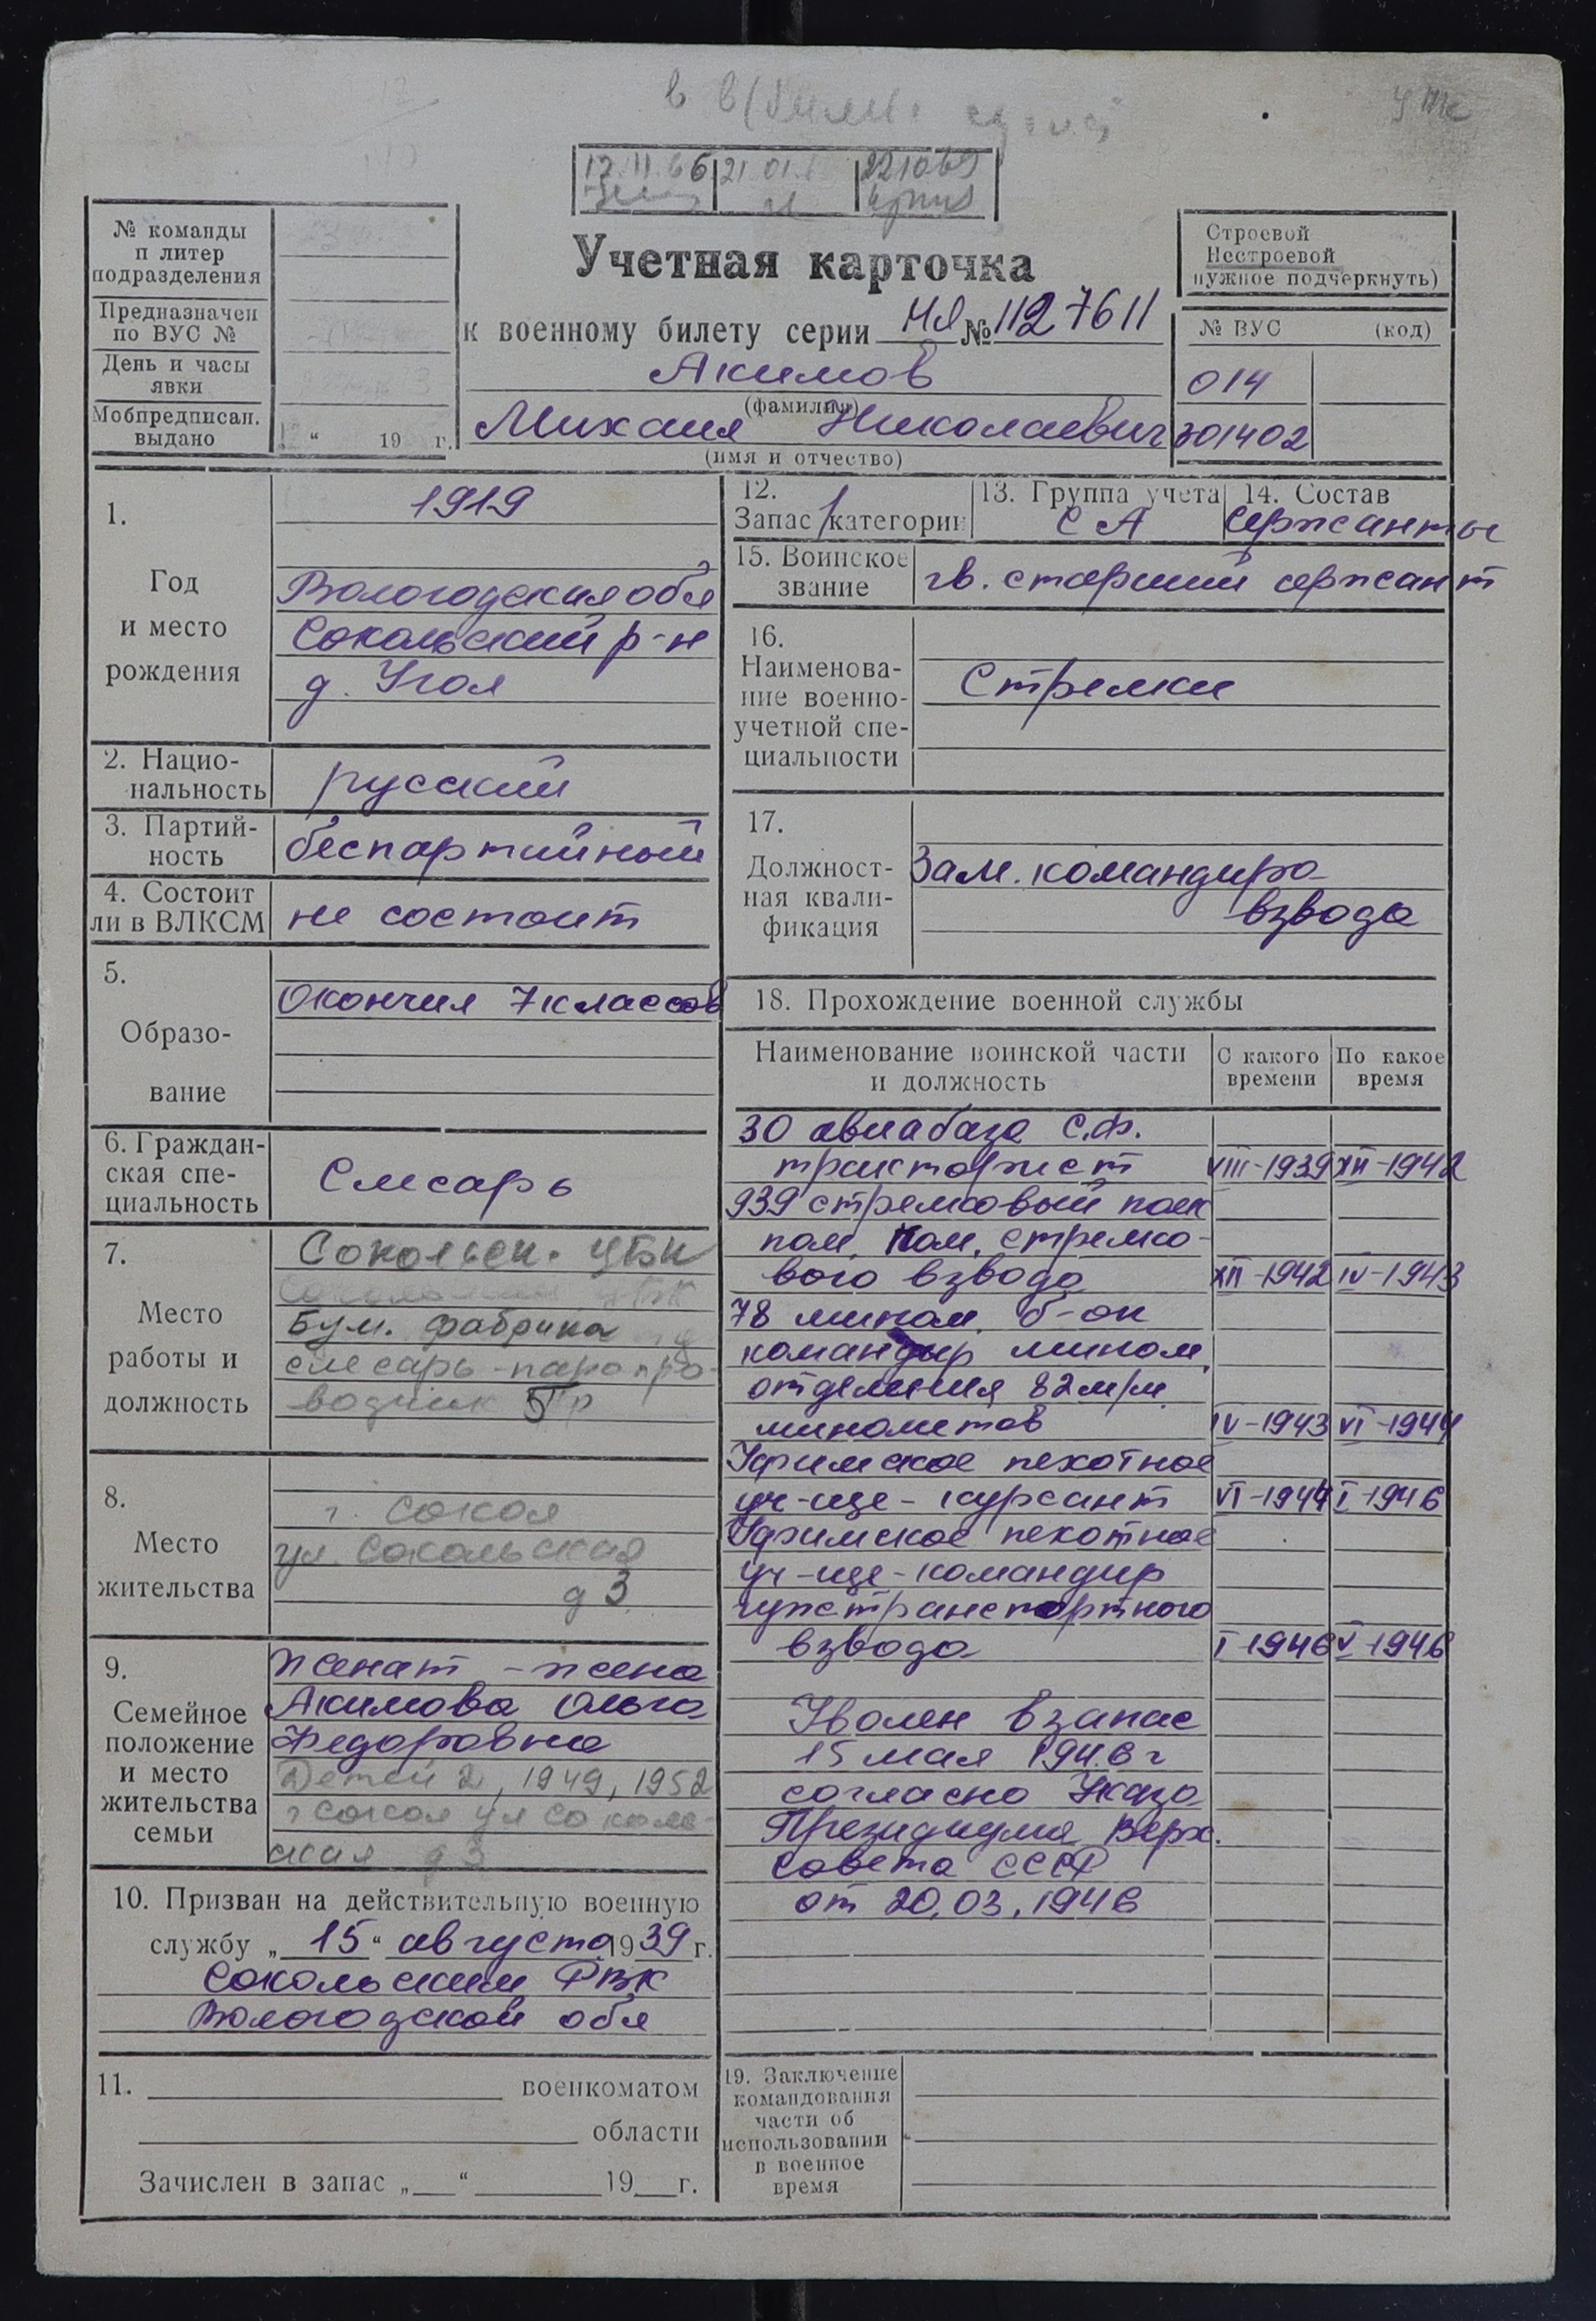 12.11.66 21 01 221069
№ команды
п литер
подразделения
Предназначен
по ВУС №
День и часы
явки
Мобпредписан.
выдано
“ 19 г.
Учетная карточка
к военному билету серии НЯ № 1127611
Акимов
(фамилия)
Михаил Николаевич
(имя и отчество)
Строевой
Нестроевой
нужное подчеркнуть)
№ ВУС (код)
014
301402
1.
Год
и место
рождения
1919
Вологодская обл
Сокольский р-н
д. Угол
2. Нацио-
нальность
русский
3. Партий-
ность
беспартийный
4. Состоит
ли в ВЛКСМ
не состоит
5.
Образо-
вание
Окончил 7 классов
6. Граждан-
ская спе-
циальность
Слесарь
7.
Место
работы и
должность
Сокольск. ЦБК
Бум. фабрика
слесарь-паропро-
водчик 5 р
8.
Место
жительства
г. Сокол
ул. Сокольская
д 3
9.
Семейное
положение
и место
жительства
семьи
женат - жена
Акимова Ольга
Федоровна
Детей 2, 1949, 1952
г Сокол ул Соколь-
ская д 3
10. Призван на действительную военную
службу „ 15 “ августа 1939 г.
Сокольским РВК
Вологодской обл
11. военкоматом
области
Зачислен в запас „ “ 19 г.
12.
Запас 1 категории
13. Группа учета
СА
14. Состав
сержанты
15. Воинское
звание
гв. старший сержант
16.
Наименова-
ние военно-
учетной спе-
циальности
Стрелки
17.
Должност-
ная квали-
фикация
Зам. командира
взвода
18. Прохождение военной службы
Наименование воинской части
и должность
С какого
времени
По какое
время
30 авиабаза С.Ф.
тракторист VIII-1939 XII-1942
939 стрелковый полк
пом. ком. стрелко-
вого взвода XII-1942 IV-1943
78 мином. б-он
командир мином.
отделения 82 м/м
минометов IV-1943 VI-1944
Уфимское пехотное
уч-ще - курсант VI-1944 I-1946
Уфимское пехотное
уч-ще - командир
гужтранспортного
взвода I-1946 V-1946
Уволен в запас
15 мая 1946 г
согласно Указа
Президиума Верх.
Совета СССР
от 20.03.1946
19. Заключение
командования
части об
использовании
в военное
время